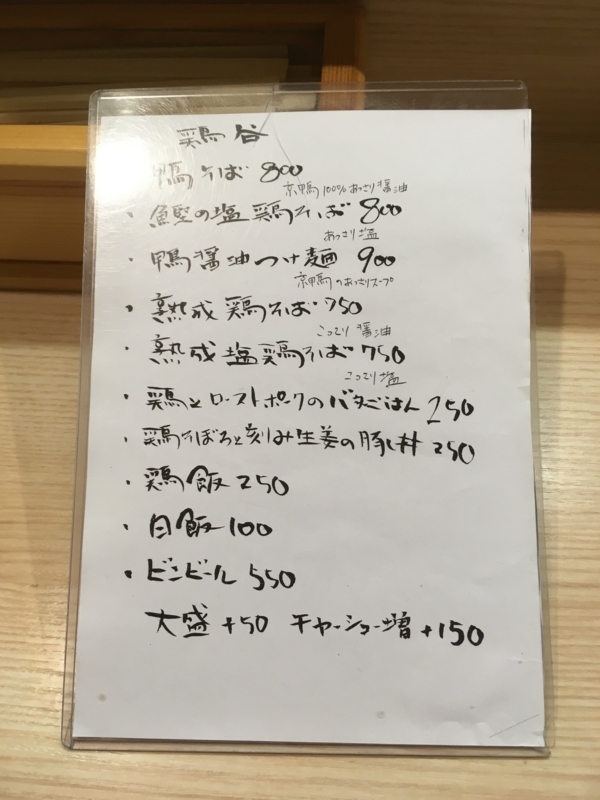 鶏谷
鴨そば 800
京鴨100%あっさり醤油
・鰹の塩鶏そば 800
あっさり塩
・鴨醤油つけ麺 900
京鴨のあっさりスープ
・熟成鶏そば 750
こってり醤油
・熟成塩鶏そば 750
こってり塩
・鶏とローストポークのバターごはん 250
・鶏そぼろと刻み生姜の豚し丼 250
・鶏飯 250
・白飯 100
・ビンビール 550
大盛 +50 チャーシュー増 +150